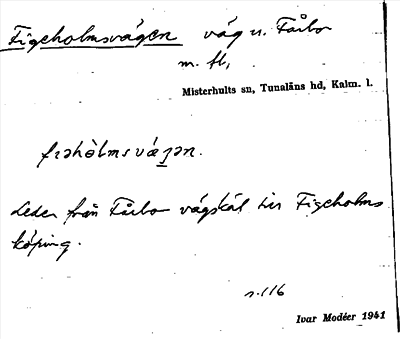 Figeholmsvägen väg v. Fårbo
m. fl,
Misterhults sn, Tunaläns hd, Kalm. l.
Leder från Fårbo vägskäl till Figeholms
köping.
s. 116
Ivar Modéer 1941